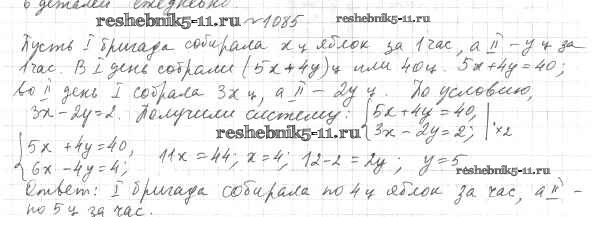 6 деталей ежедневно.
reshebnik5-11.ru ~1085 reshebnik5-11.ru
Пусть I бригада собирала x ц яблок за 1 час, а II – y ц за
1 час. В I день собрали (5x+4y) ц или 40 ц. 5x+4y=40;
во II день I собрала 3x ц, а II – 2y ц. По условию,
3x-2y=2. Получили систему: {5x+4y=40, 3x-2y=2; | ·x2
reshebnik5-11.ru
{5x+4y=40, 6x-4y=4; 11x=44; x=4; 12-2=2y; y=5
reshebnik5-11.ru
Ответ: I бригада собирала по 4 ц яблок за час, а II –
по 5 ц за час.